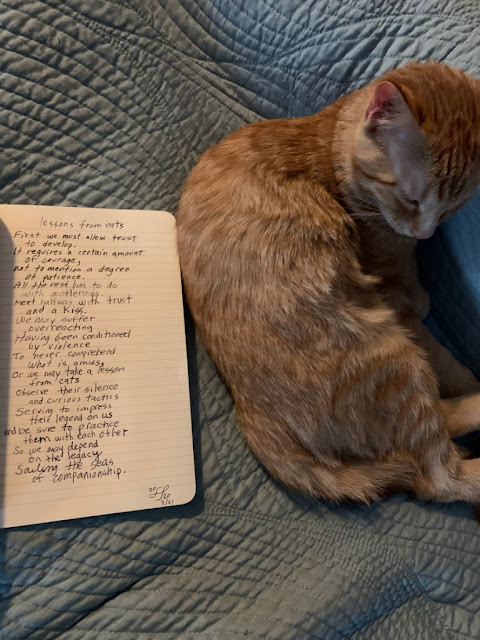 lessons from cats
First we must allow trust
to develop.
It requires a certain amount
of courage,
not to mention a degree
of patience.
All the rest has to do
with gentleness.
Meet halfway with trust
and a kiss.
We may suffer
overreacting
Having been conditioned
by violence
To never comprehend
what is amiss,
Or we may take a lesson
from cats
Observe their silence
and curious tactics
Serving to impress
their legend on us
and be sure to practice
them with each other
So we may depend
on the legacy
Sailing the seas
of companionship.